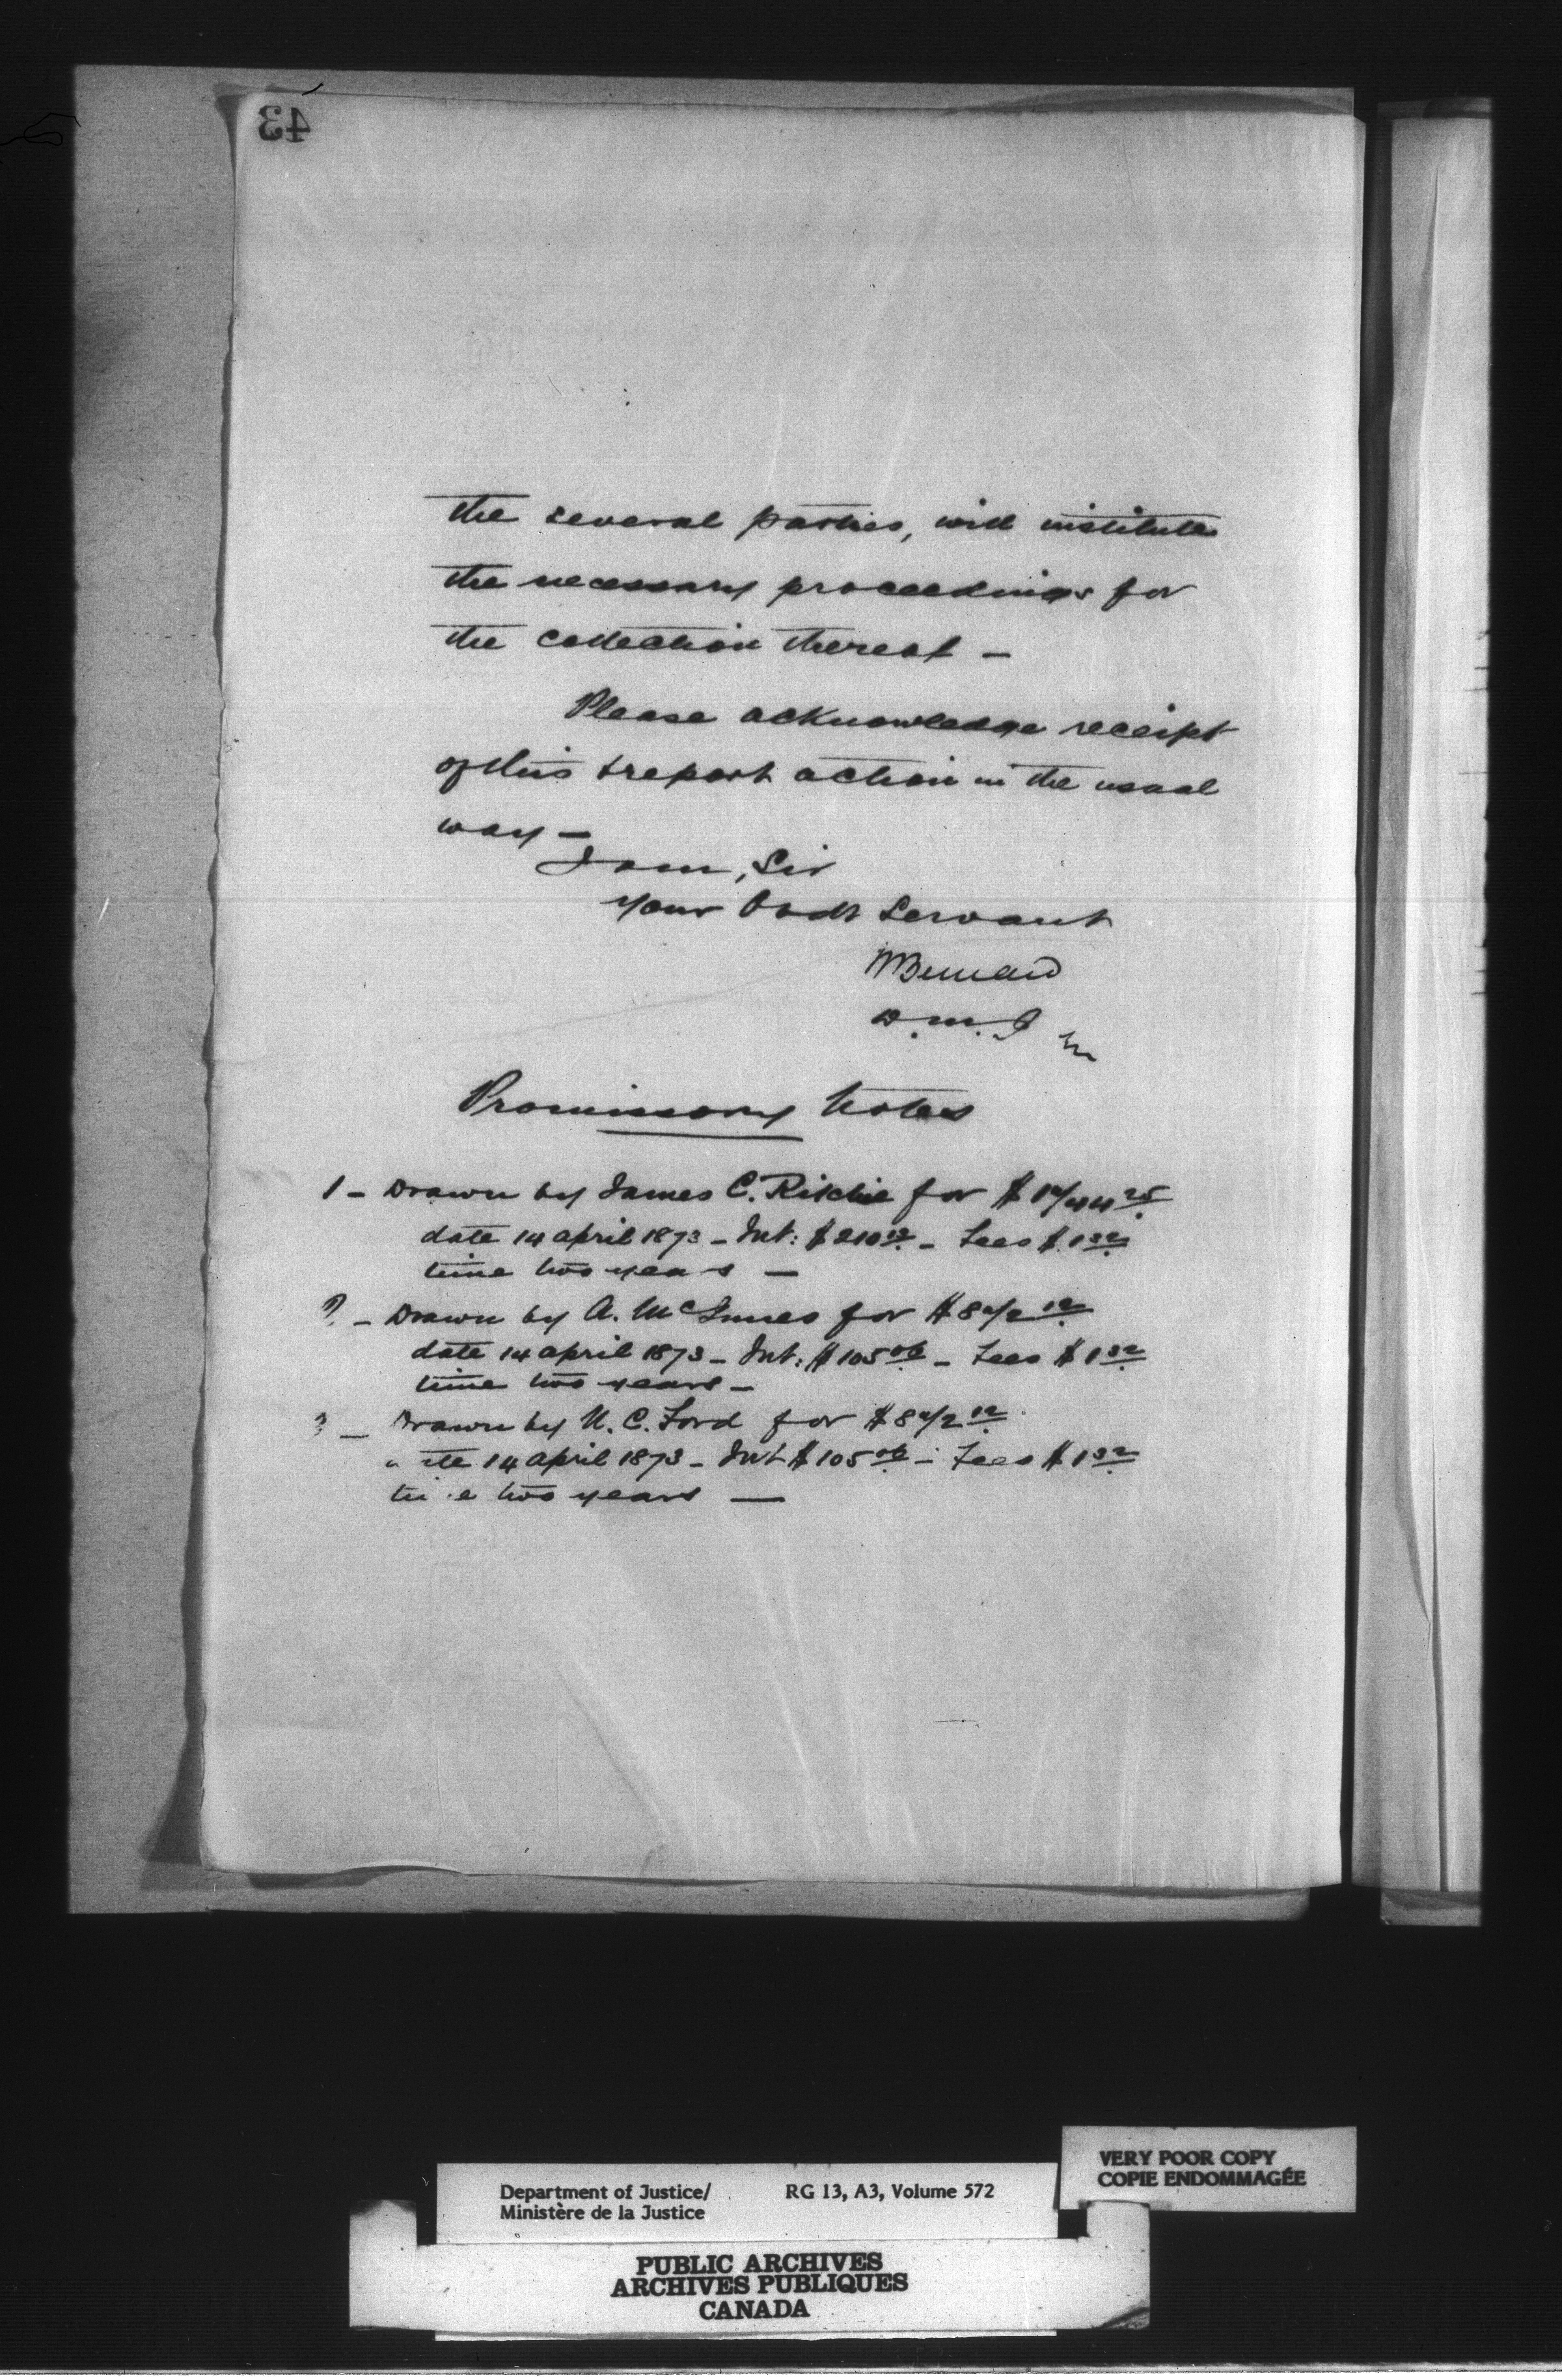 43
the several parties, will institute
the necessary proceedings for
the collection thereof –
Please acknowledge receipt
of this & report action in the usual
way –
I am, Sir
Your Obdt Servant
HBernard
D.M.J
Promissory Notes
1 – Drawn by James C. Ritchie for $
date 14 april 1873 – Int: $210 12 – Fees $1 32
time two years –
2 – Drawn by A. McInnes for $
date 14 april 1873 – Int: $105 06 – Fees $1 32
time two years –
– Drawn by N. C. Ford for $
date 14 april 1873 – Int $105 06 – Fees $1 32
time two years –
VERY POOR COPY
COPIE ENDOMMAGÉE
Department of Justice/ RG 13, A3, Volume 572
Ministère de la Justice
PUBLIC ARCHIVES
ARCHIVES PUBLIQUES
CANADA